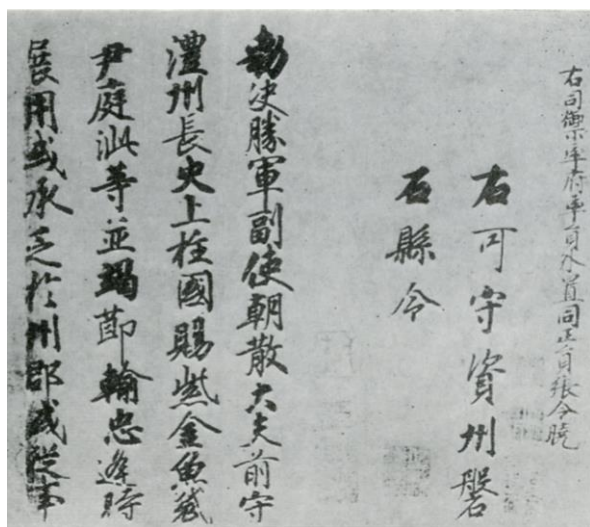 右司禦率府率員外置同正員張令曉
右可守資州磐
石縣令
勑決勝軍副使朝散大夫前守
澧州長史上柱國賜紫金魚袋
尹庭泚等並竭節輸忠逢時
展用或承乏於州郡或從事